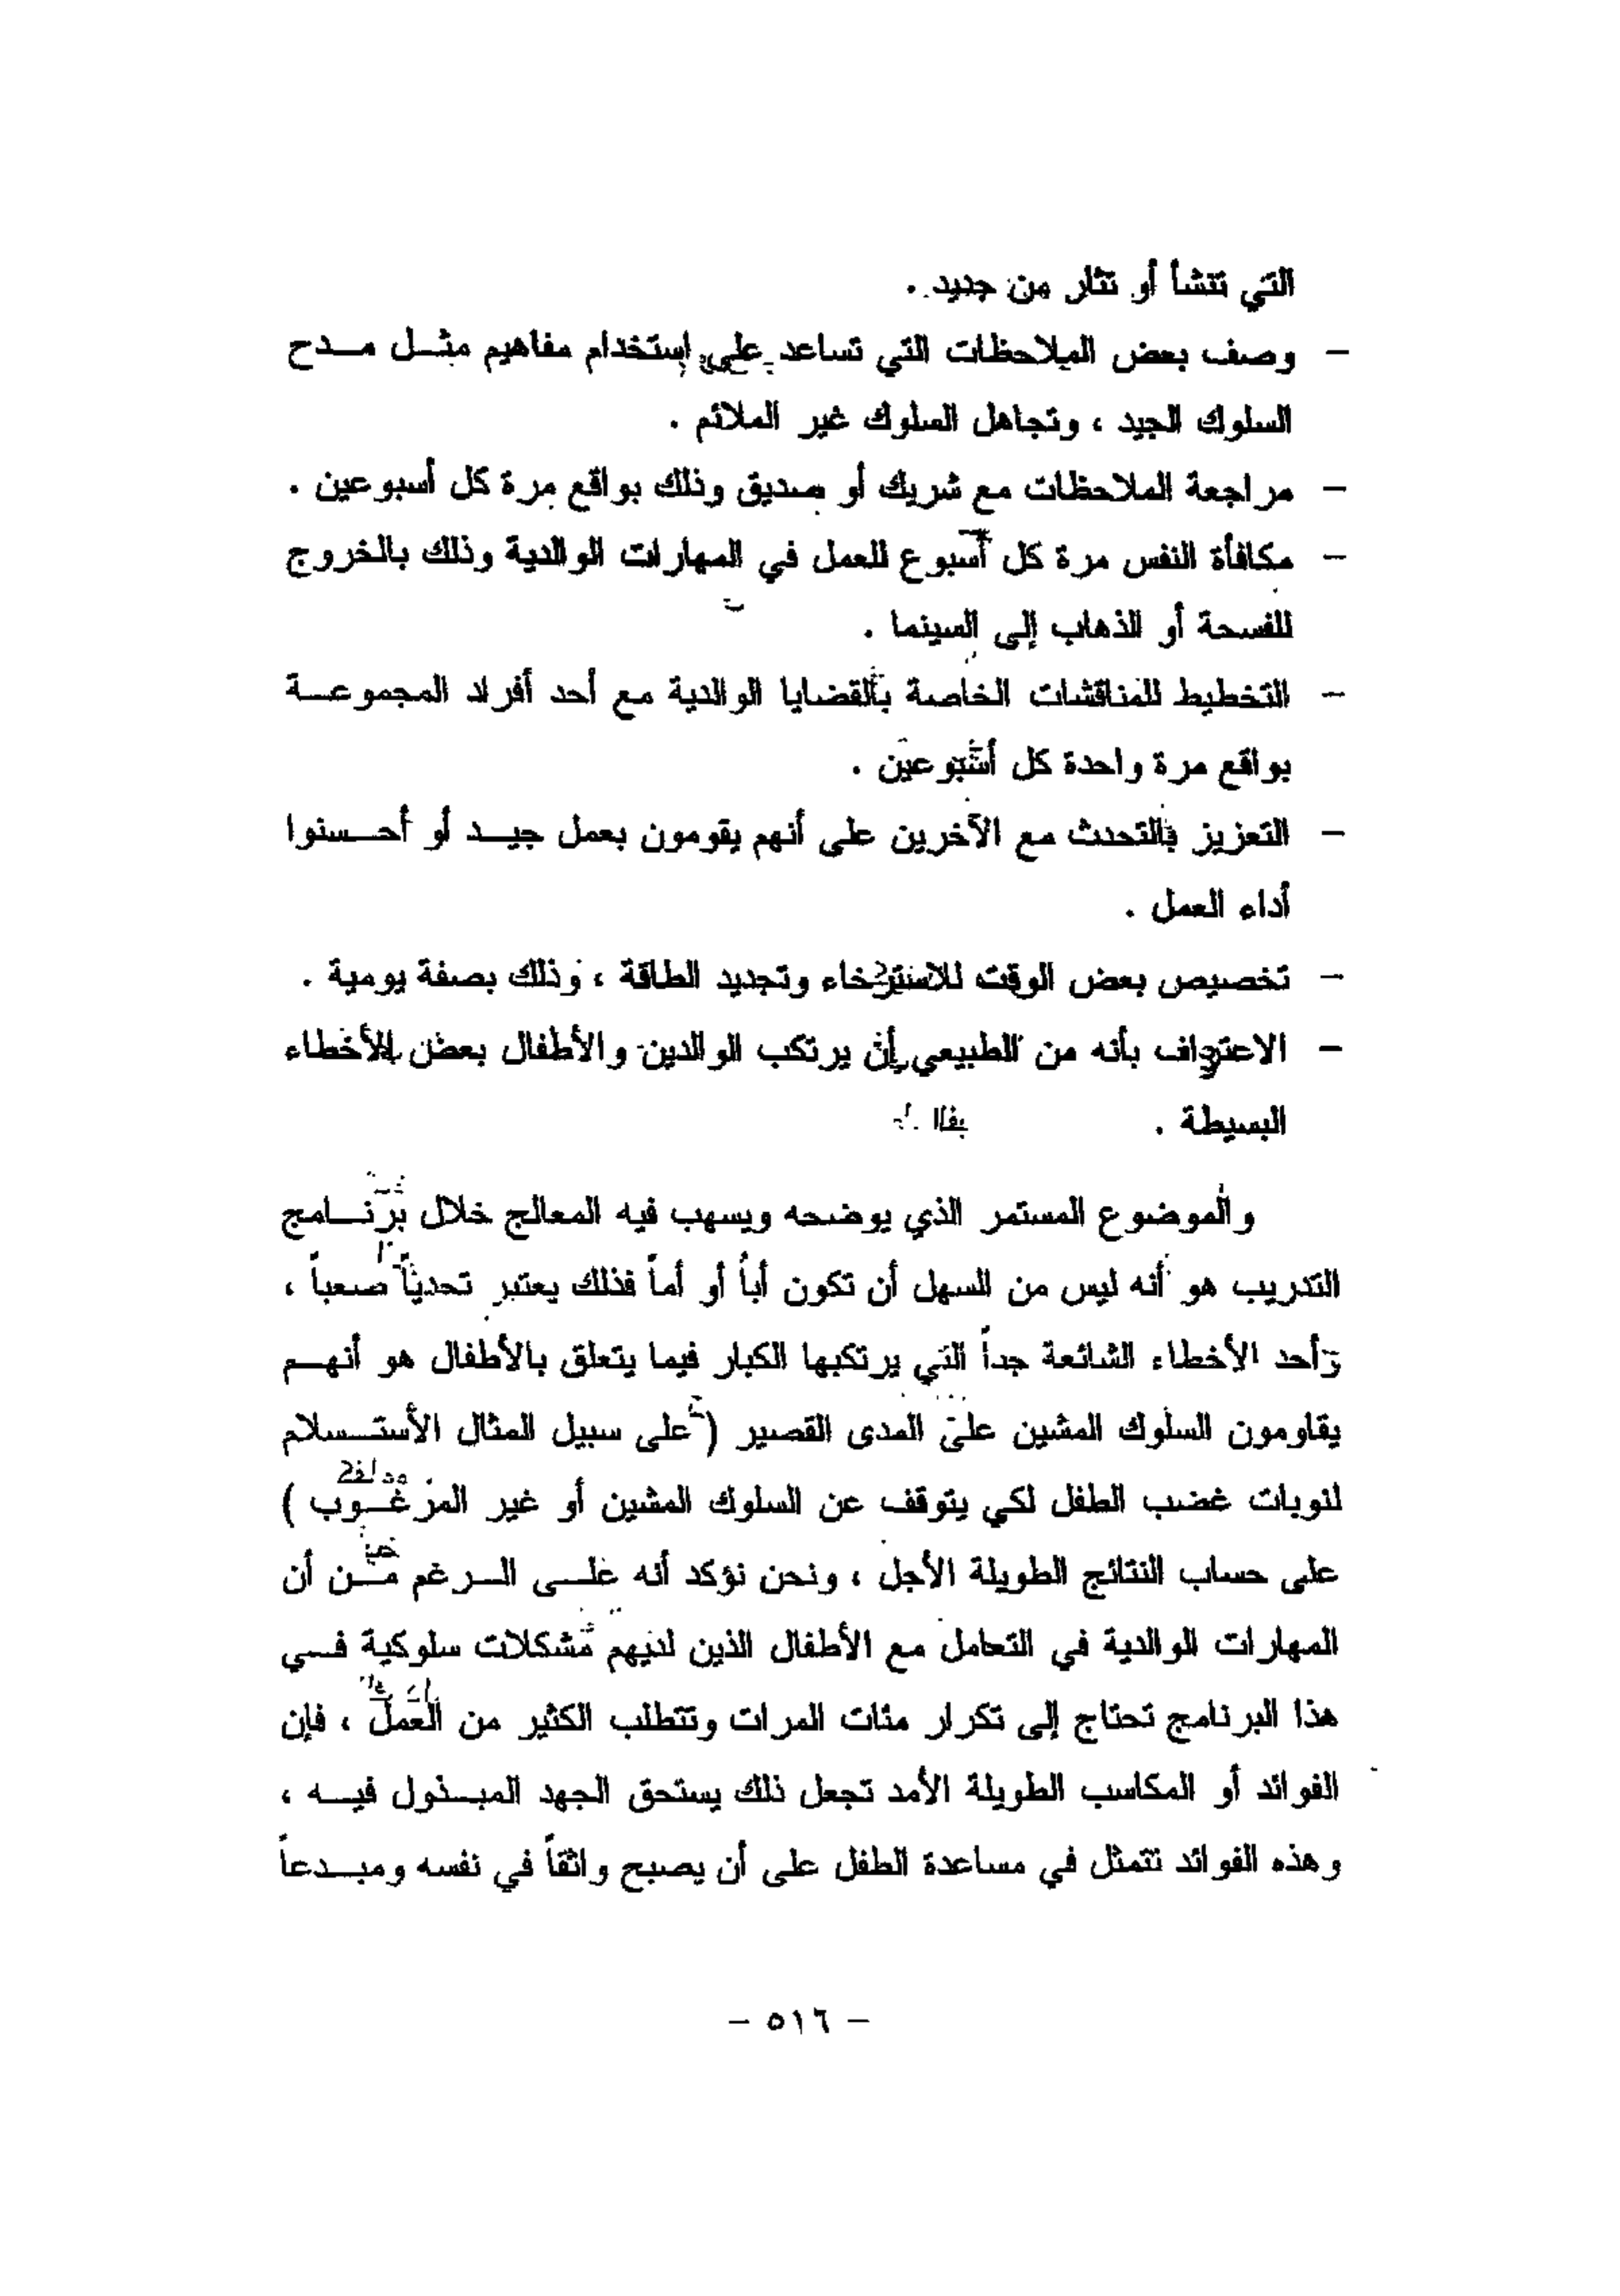 التي تنشأ أو تثار من جديد .
– وصف بعض الملاحظات التي تساعد على إستخدام مفاهيم مثل مدح
السلوك الجيد ، وتجاهل السلوك غير الملائم .
– مراجعة الملاحظات مع شريك أو صديق وذلك بواقع مرة كل أسبوعين .
– مكافأة النفس مرة كل أسبوع للعمل في المهارات الوالدية وذلك بالخروج
للفسحة أو الذهاب إلى السينما .
– التخطيط للمناقشات الخاصة بالقضايا الوالدية مع أحد أفراد المجموعة
بواقع مرة واحدة كل أسبوعين .
– التعزيز بالتحدث مع الآخرين على أنهم يقومون بعمل جيد أو أحسنوا
أداء العمل .
– تخصيص بعض الوقت للاسترخاء وتجديد الطاقة ، وذلك بصفة يومية .
– الاعتراف بأنه من الطبيعي أن يرتكب الوالدين والأطفال بعض الأخطاء
البسيطة .
والموضوع المستمر الذي يوضحه ويسهب فيه المعالج خلال برنامج
التدريب هو أنه ليس من السهل أن تكون أباً أو أماً فذلك يعتبر تحدياً صعباً ،
وأحد الأخطاء الشائعة جداً التي يرتكبها الكبار فيما يتعلق بالأطفال هو أنهم
يقاومون السلوك المشين على المدى القصير ( على سبيل المثال الأستسلام
لنوبات غضب الطفل لكي يتوقف عن السلوك المشين أو غير المرغوب )
على حساب النتائج الطويلة الأجل ، ونحن نؤكد أنه على الرغم من أن
المهارات الوالدية في التعامل مع الأطفال الذين لديهم مشكلات سلوكية في
هذا البرنامج تحتاج إلى تكرار مئات المرات وتتطلب الكثير من العمل ، فإن
الفوائد أو المكاسب الطويلة الأمد تجعل ذلك يستحق الجهد المبذول فيه ،
وهذه الفوائد تتمثل في مساعدة الطفل على أن يصبح واثقاً في نفسه ومبدعاً
– ٥١٦ –